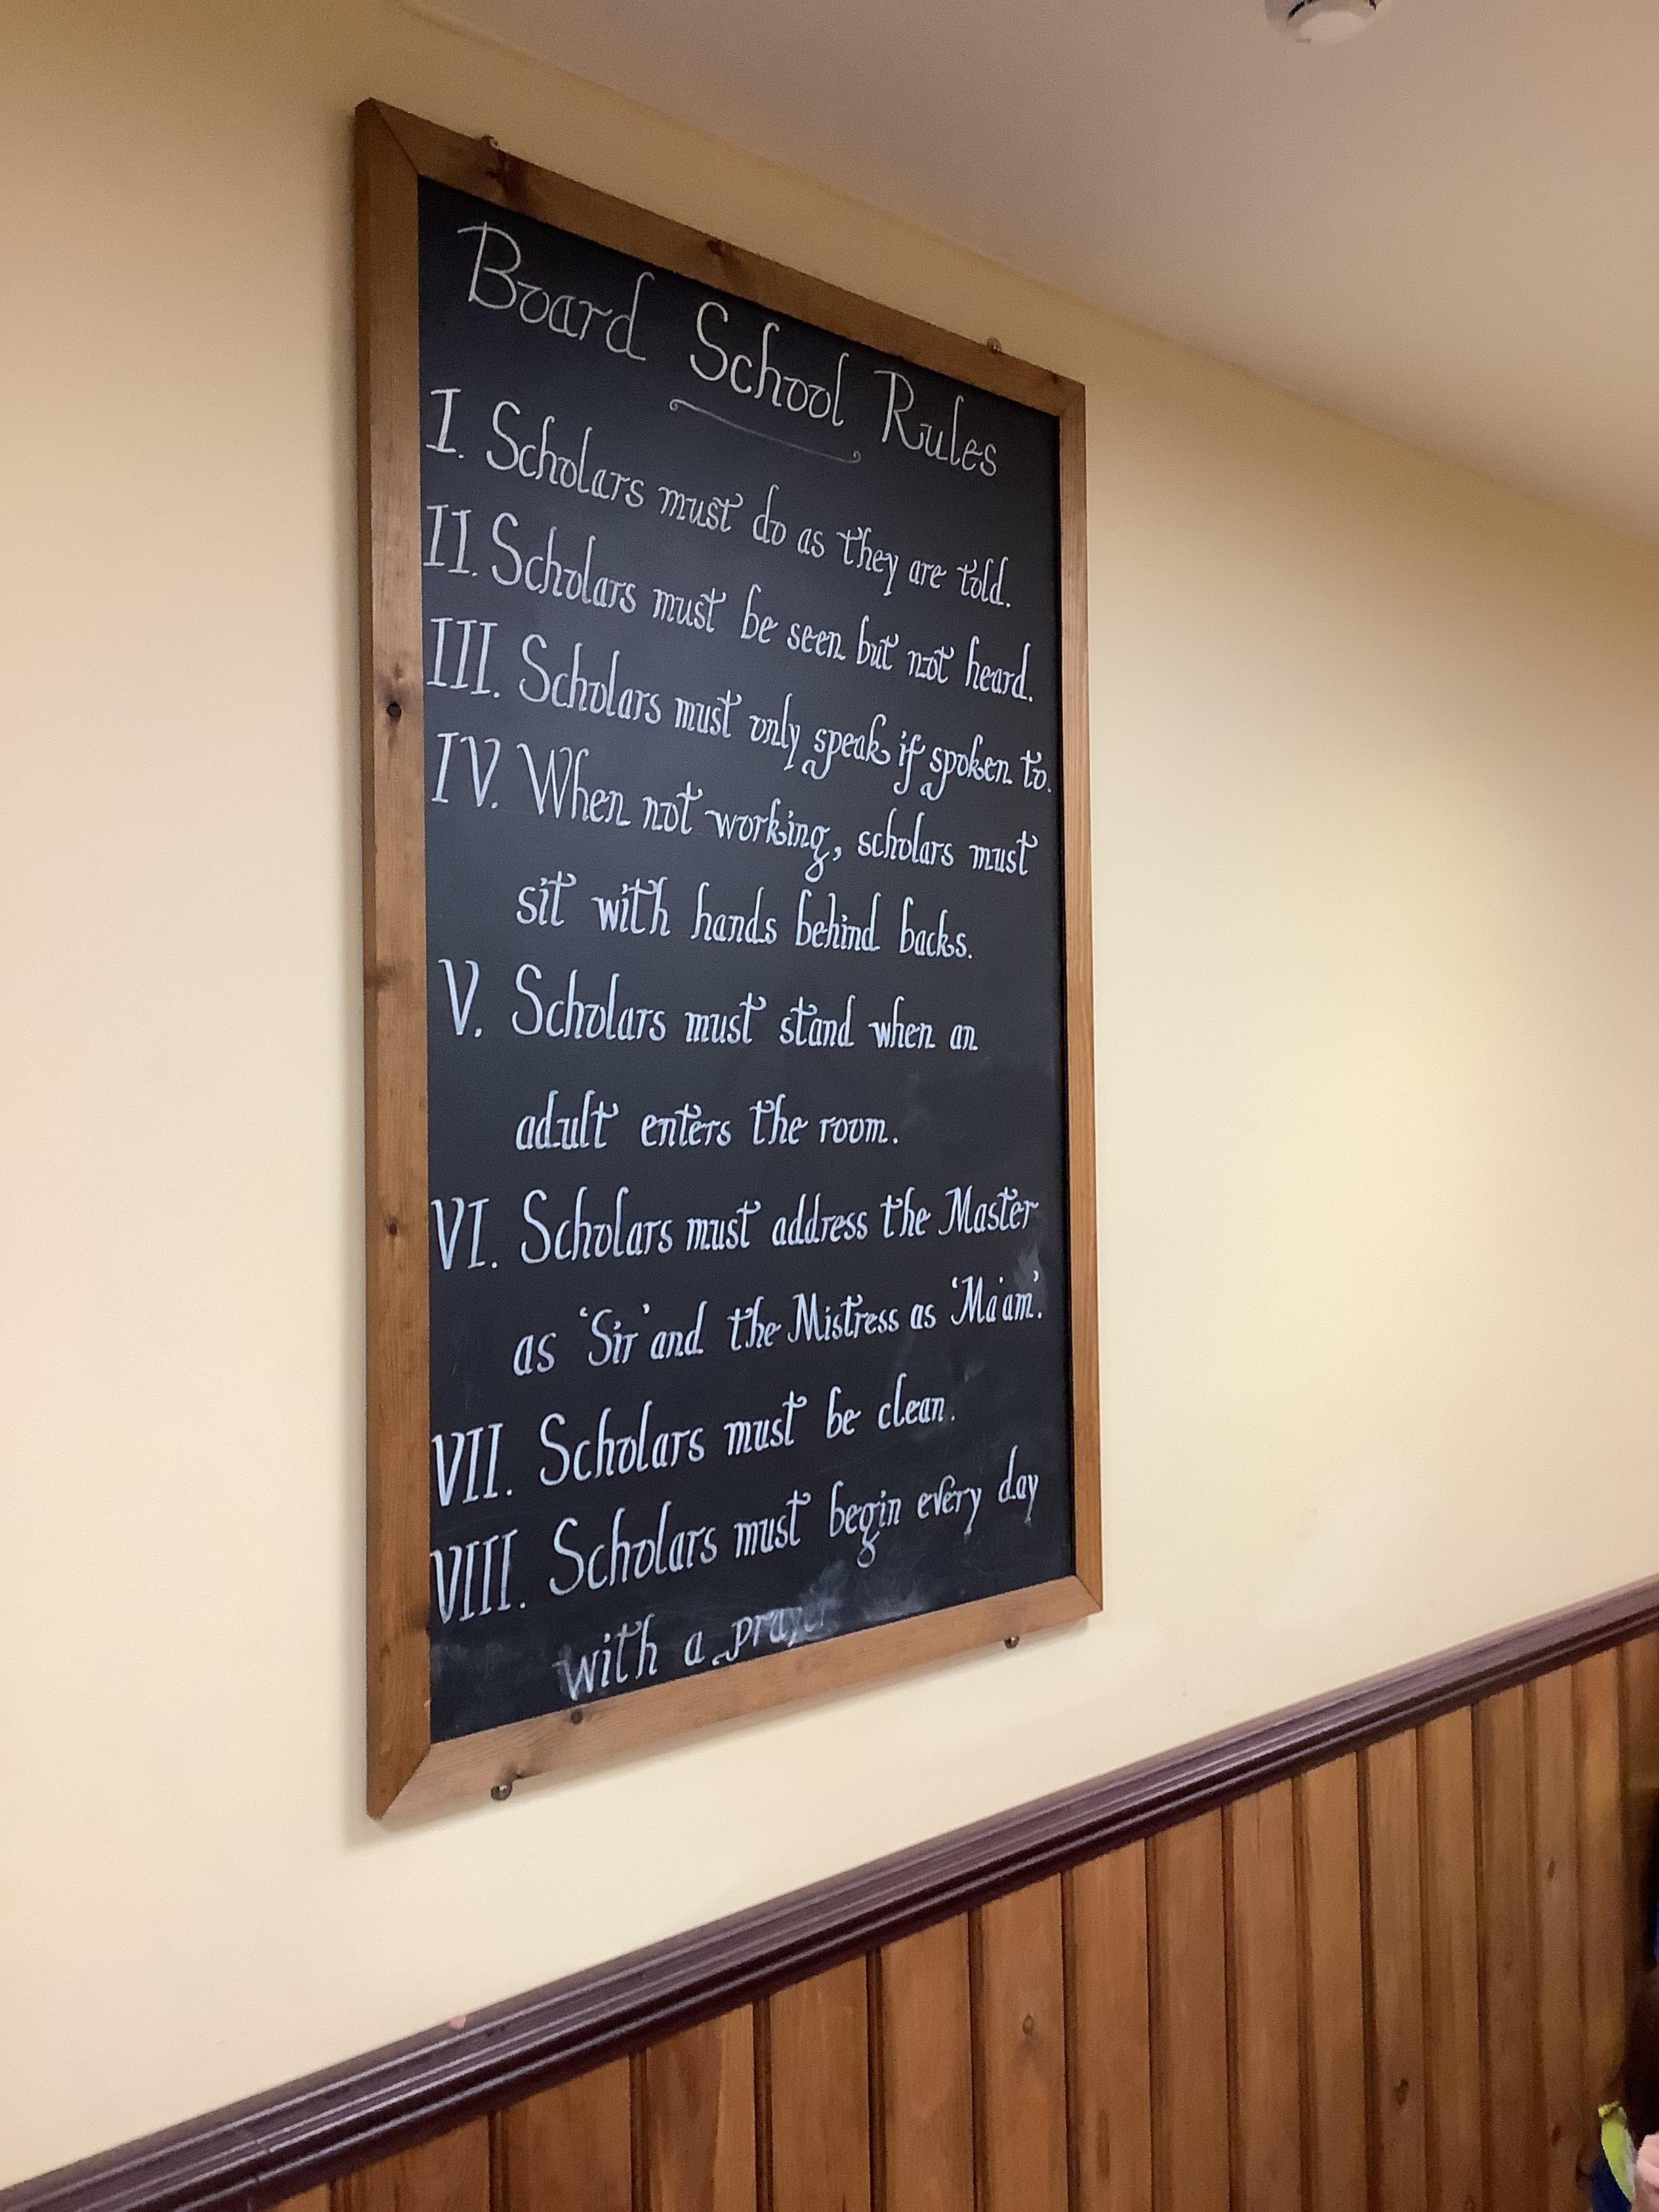 Board School Rules
I. Scholars must do as they are told.
II. Scholars must be seen but not heard.
III. Scholars must only speak if spoken to.
IV. When not working, scholars must
sit with hands behind backs.
V. Scholars must stand when an
adult enters the room.
VI. Scholars must address the Master
as 'Sir' and the Mistress as 'Ma'am'.
VII. Scholars must be clean.
VIII. Scholars must begin every day
with a prayer